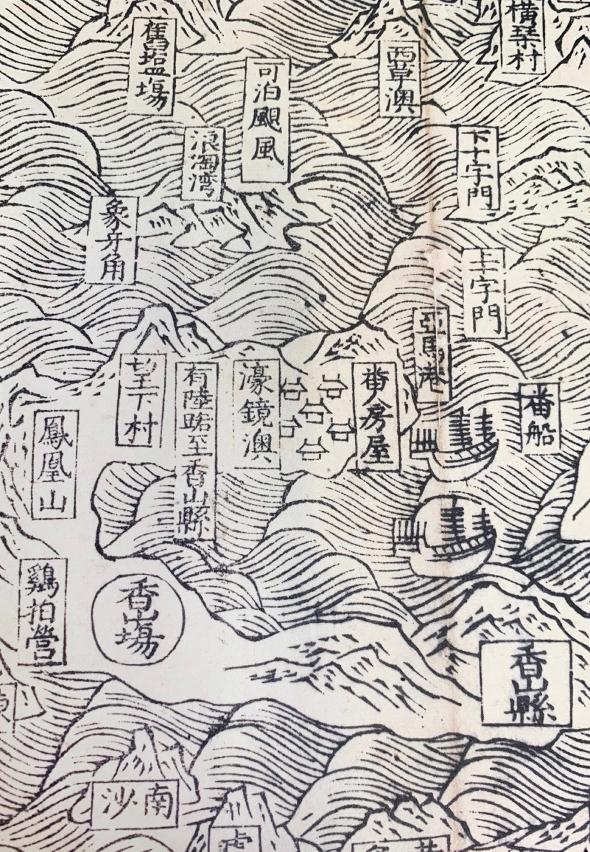 橫琴村
舊鹽塲
可泊颶風
西草澳
浪淘湾
下十字門
象牙角
上十字門
亞馬港
望下村
有陸路至香山縣
濠鏡澳
番房屋
番船
鳳凰山
雞拍營
香山塲
香山縣
南沙
虎